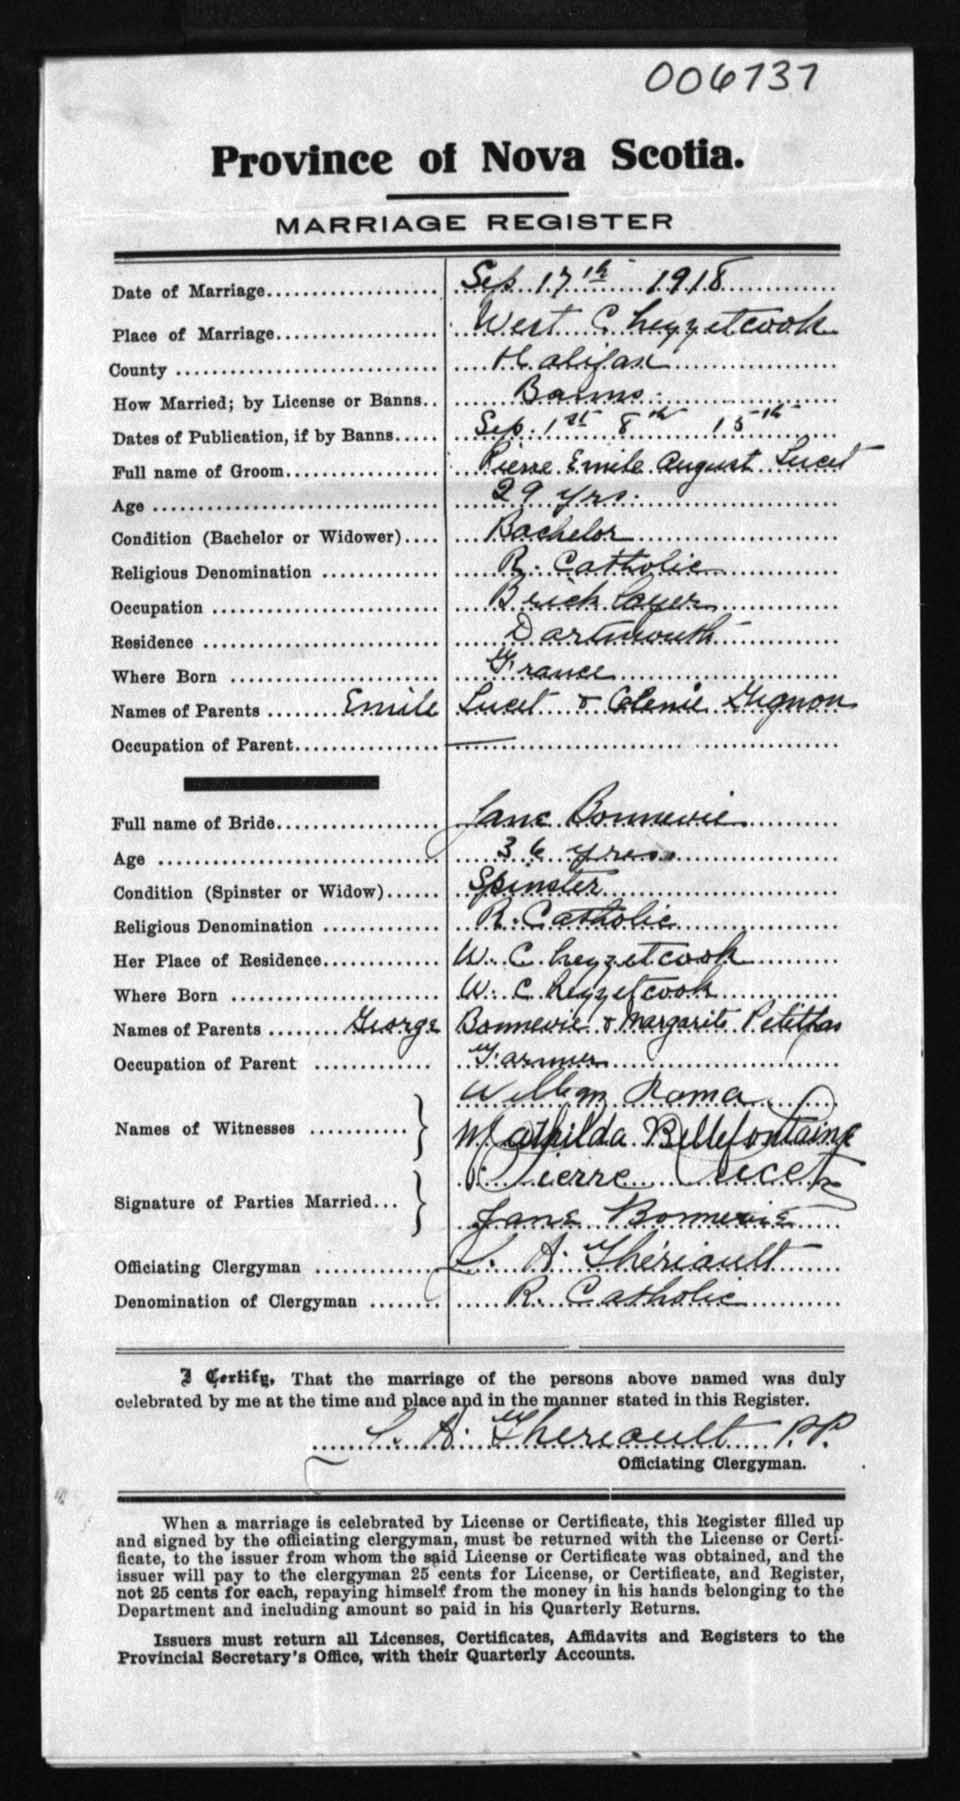 006737
Province of Nova Scotia.
MARRIAGE REGISTER
Date of Marriage Sep. 17th 1918
Place of Marriage West Chezzetcook
County Halifax
How Married; by License or Banns Banns
Dates of Publication, if by Banns Sep. 1st 8th 15th
Full name of Groom Pierre Emile August Lucet
Age 29 yrs.
Condition (Bachelor or Widower) Bachelor
Religious Denomination R. Catholic
Occupation Brick layer
Residence Dartmouth
Where Born France
Names of Parents Emile Lucet & Gignon
Occupation of Parent —
Full name of Bride Jane Bonnevie
Age 36 yrs.
Condition (Spinster or Widow) Spinster
Religious Denomination R. Catholic
Her Place of Residence W. Chezzetcook
Where Born W. Chezzetcook
Names of Parents George Bonnevie & Margarite Petitpas
Occupation of Parent Farmer
William Roma
Names of Witnesses }
Mathilda Bellefontaine
Pierre Lucet
Signature of Parties Married... }
Jane Bonnevie
Officiating Clergyman A. Thériault
Denomination of Clergyman R. Catholic
I Certify, That the marriage of the persons above named was duly
celebrated by me at the time and place and in the manner stated in this Register.
A. Theriault P.P.
Officiating Clergyman.
When a marriage is celebrated by License or Certificate, this Register filled up
and signed by the officiating clergyman, must be returned with the License or Certi-
ficate, to the issuer from whom the said License or Certificate was obtained, and the
issuer will pay to the clergyman 25 cents for License, or Certificate, and Register,
not 25 cents for each, repaying himself from the money in his hands belonging to the
Department and including amount so paid in his Quarterly Returns.
Issuers must return all Licenses, Certificates, Affidavits and Registers to the
Provincial Secretary's Office, with their Quarterly Accounts.